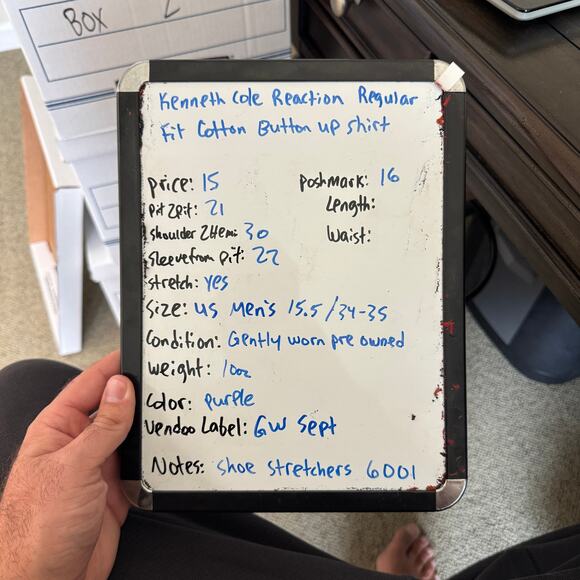 BOX 2
Kenneth Cole Reaction Regular
Fit Cotton Button up shirt
price: 15
Poshmark: 16
pit 2 pit: 21
Length:
shoulder 2 Hem: 30
Waist:
Sleeve from pit: 22
stretch: yes
Size: US Men's 15.5/34-35
Condition: Gently worn pre owned
weight: 10oz
Color: purple
Vendoo Label: GW Sept
Notes: Shoe stretchers 6001